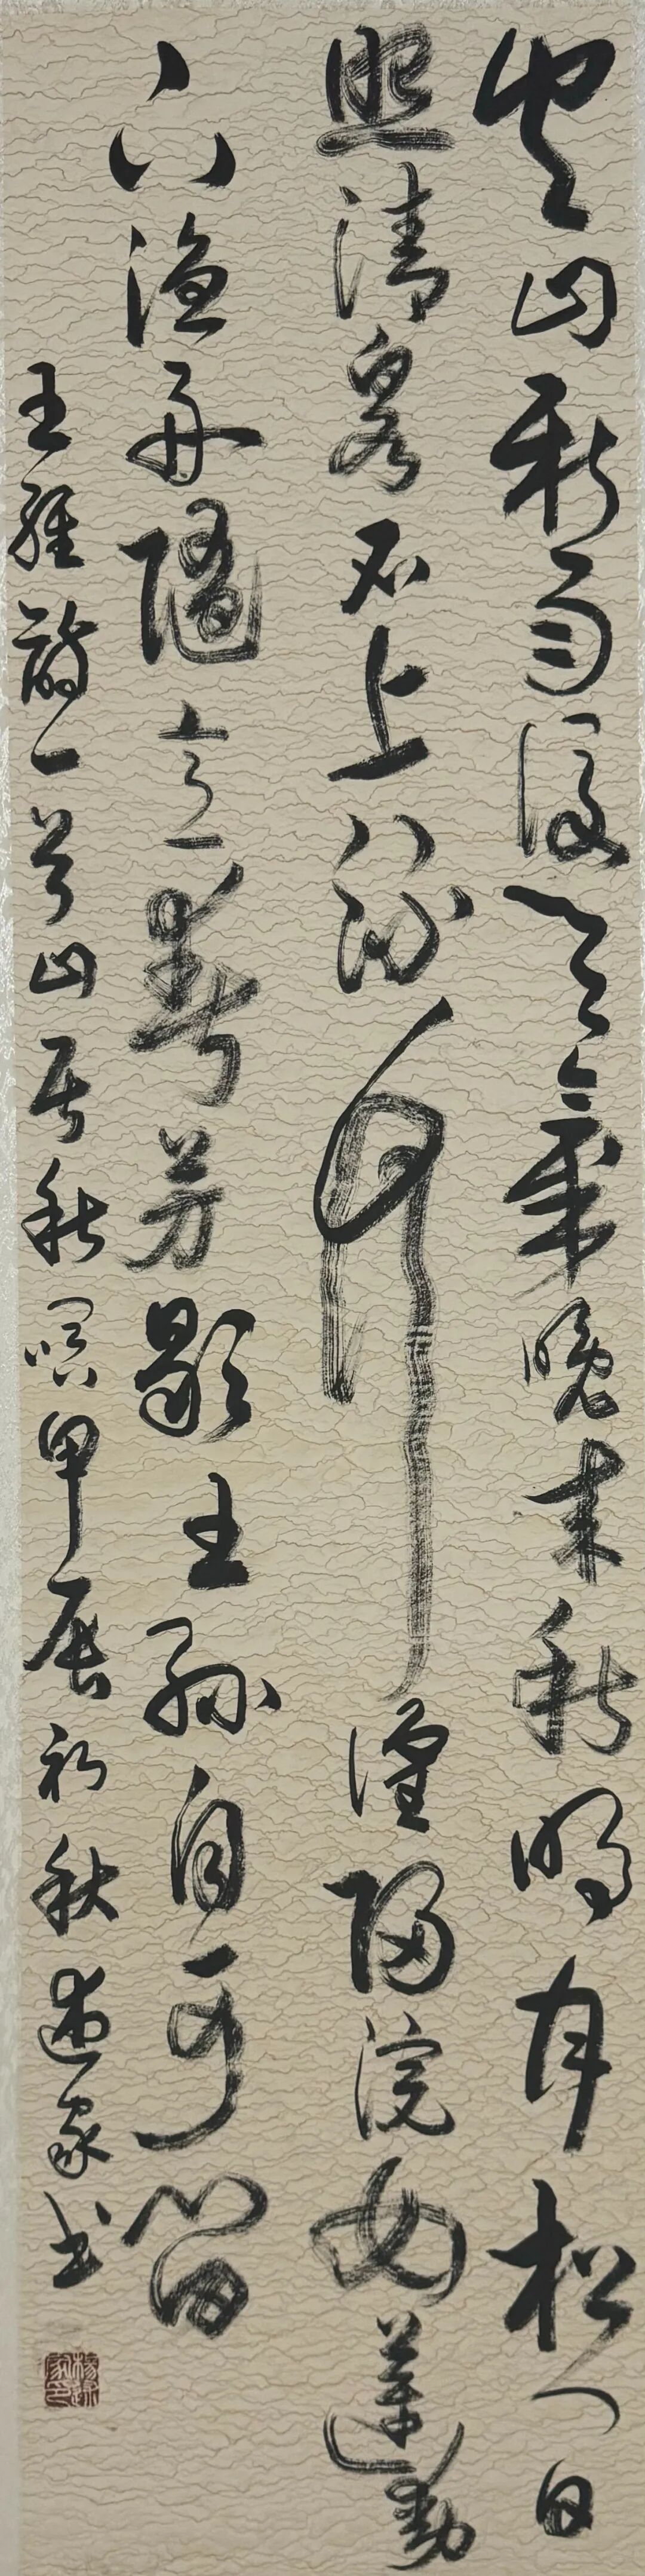 空山新雨後天氣晚來秋明月松間
照清泉石上流竹喧歸浣女蓮動
下漁舟隨意春芳歇王孫自可留
王維詩一首山居秋暝甲辰初秋家书